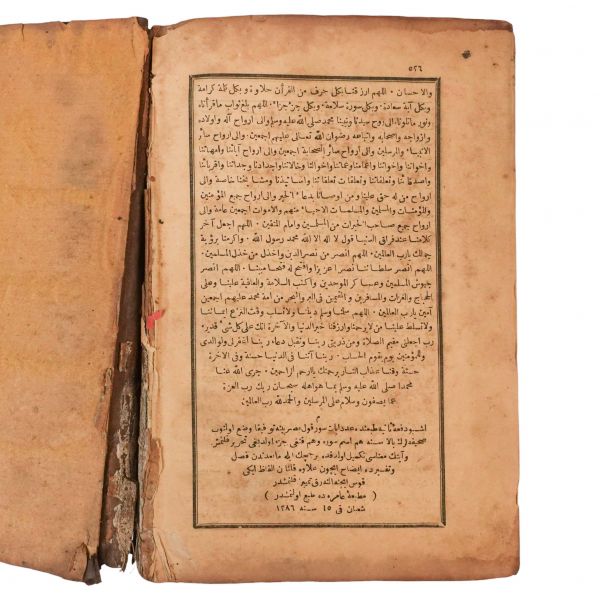 ٥٢٦
والاحسان ٠ اللهم ارزقنا بكل حرف من القرآن حلاوة وبكل كلمة كرامة
وبكل آية سعادة ٠ وبكل سورة سلامة ٠ وبكل جزء جزاء ٠ اللهم بلغ ثواب ماقرأناه
ونور ماتلوناه الى روح سيدنا ونبينا محمد صلى الله عليه وسلم والى ارواح آله واولاده
وازواجه واصحابه واتباعه رضوان الله تعالى عليهم اجمعين والى ارواح سائر
الانبياء والمرسلين والى ارواح سائر الصحابة اجمعين والى ارواح آبائنا وامهاتنا
واخواننا واخواتنا واعمامنا وعماتنا واخوالنا وخالاتنا واجدادنا وجداتنا واقربائنا
واصدقائنا وتعلقاتنا وتعلقات تعلقاتنا واساتيذنا ومشايخنا خاصة والى
ارواح من له حق علينا ومن اوصانا بدعاء الخير والى ارواح جميع المؤمنين
والمؤمنات والمسلمين والمسلمات الاحياء منهم والاموات اجمعين عامة والى
ارواح جميع صاحب الخيرات من المسلمين وامام المتقين ٠ اللهم اجعل آخر
كلامنا عند فراق الدنيا قول لا اله الا الله محمد رسول الله ٠ واكرمنا برؤية
جمالك يارب العالمين ٠ اللهم انصر من نصر الدين واخذل من خذل المسلمين ٠
اللهم انصر سلطاننا نصرا عزيزا وافتح له فتحا مبينا ٠ اللهم انصر
جيوش المسلمين وعساكر الموحدين واكتب السلامة والعافية علينا وعلى
الحجاج والغزات والمسافرين والمقيمين فى البر والبحر من امة محمد عليهم اجمعين
آمين يارب العالمين ٠ اللهم سلمنا وسلم ديننا ولاتسلب وقت النزع ايماننا
ولاتسلط علينا من لا يرحمنا وارزقنا خير الدنيا والآخرة انك على كل شىء قدير ٠
رب اجعلنى مقيم الصلاة ومن ذريتى ربنا وتقبل دعاء ربنا اغفرلى ولوالدى
وللمؤمنين يوم يقوم الحساب ٠ ربنا آتنا فى الدنيا حسنة وفى الآخرة
حسنة وقنا عذاب النار برحمتك ياارحم الراحمين ٠ جزى الله عنا
محمدا صلى الله عليه وسلم بما هو اهله سبحان ربك رب العزة
عما يصفون وسلام على المرسلين والحمد لله رب العالمين
عدد ايات سور
صحيفه لرك بالاسنه هم اسم سوره وهم قنغى جزء اولديغى تحرير قلنمش
وآيتك معناسى تكميل اولندقده
وتفسيرده ايضاح ايچون علاوه قلنان الفاظ ايكى
قوس ايچنه آلنه رق تمييز قلنمشدر
( مطبعۀ عامره ده طبع اولنمشدر )
شعبان فى ١٥ سنه ١٢٨٦